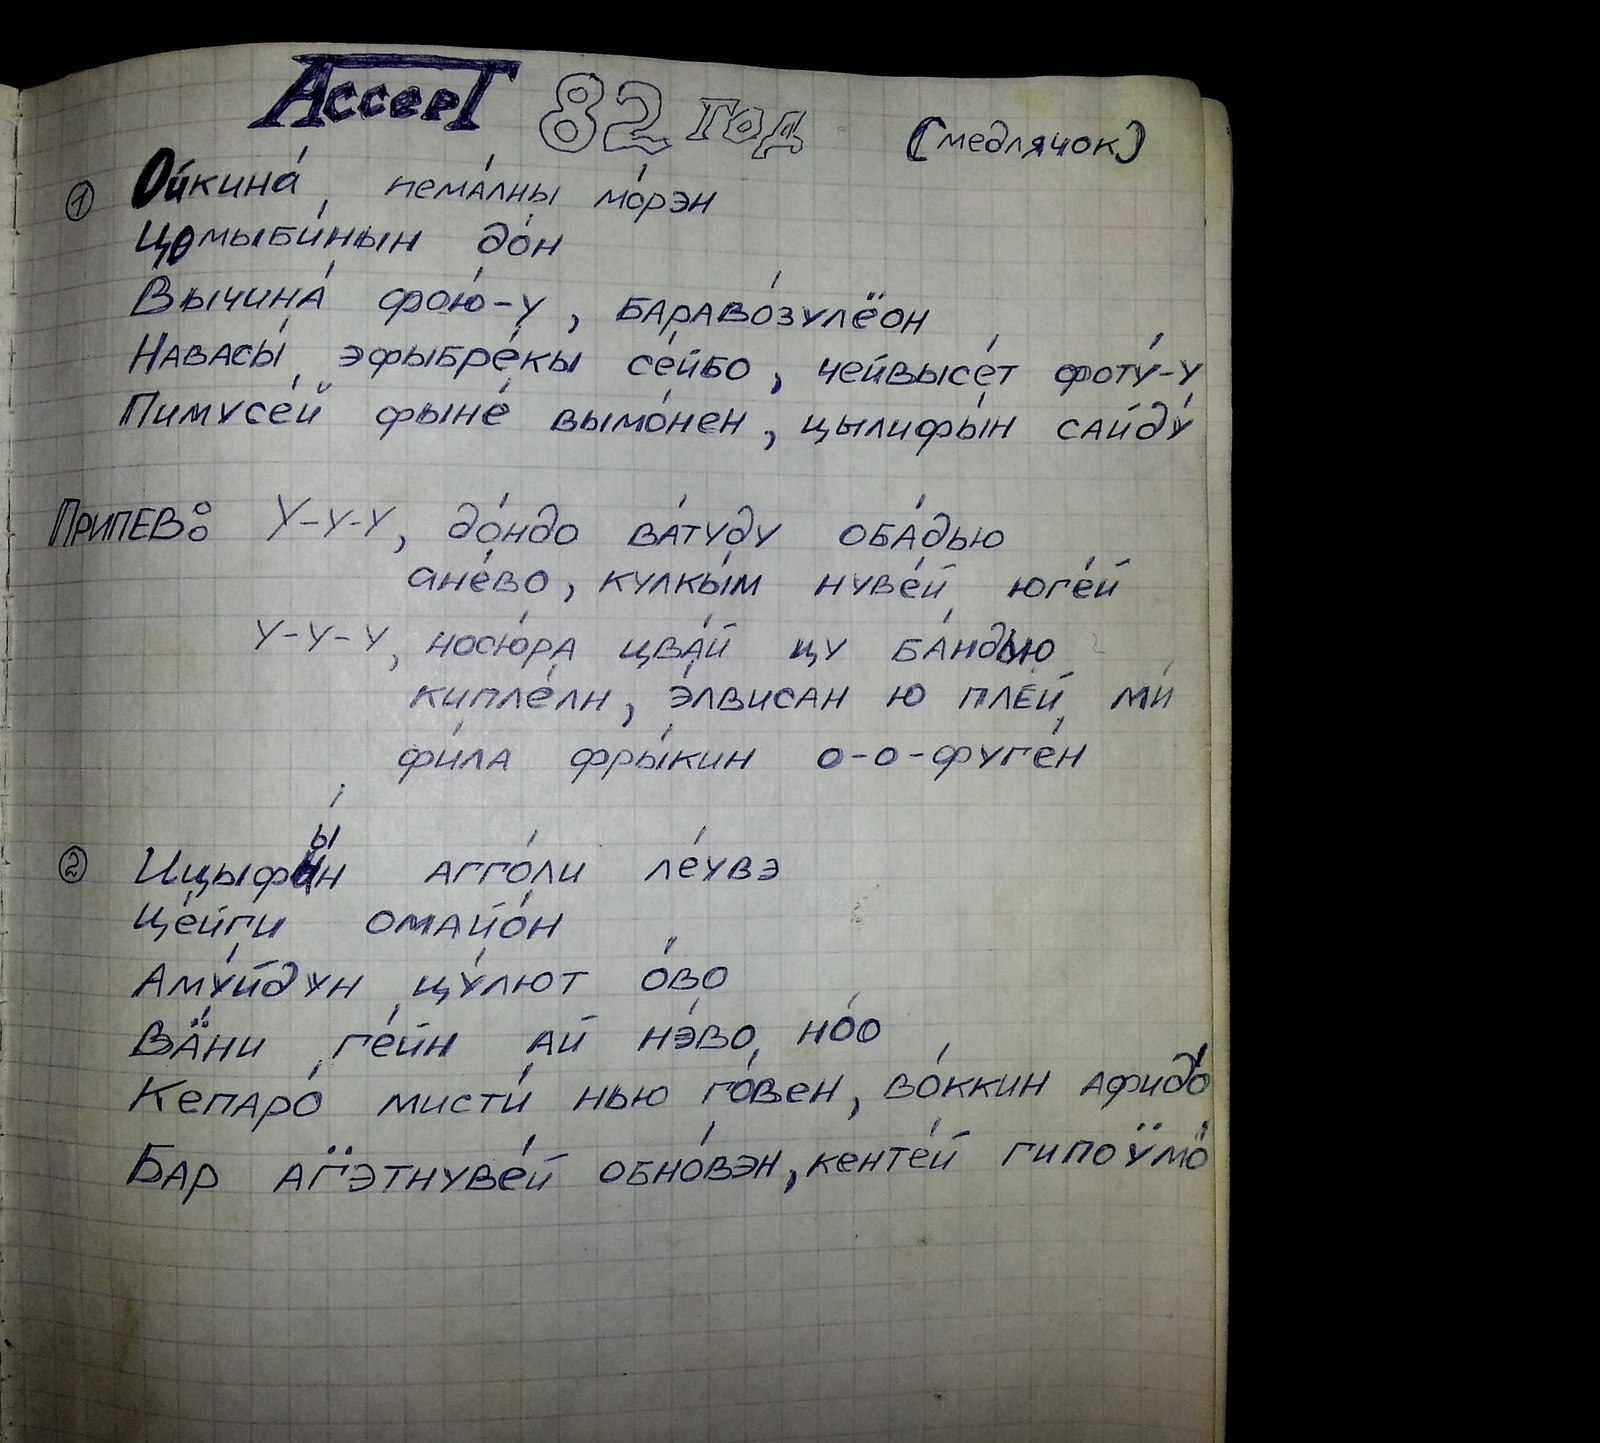 Accept 82 год (медлячок)
① Ойкина́, пема́лны мо́рэн
Цомыби́нын до́н
Вычина́ фою́-у, бараво́зулёон
Навасы́ эфыбре́кы се́йбо, чейвысе́т фоту́-у
Пимусе́й фыне́ вымо́нен, цылифы́н сайду́
Припев: У-у-у, до́ндо ва́туду оба́дью
ане́во, кулкы́м нуве́й юге́й
У-у-у, носю́ра цва́й цу ба́ндью
кипле́лн, э́лвисан ю пле́й ми́
фи́ла фры́кин о-о-фуге́н
② Ицыфы́н агго́ли ле́увэ
Це́йги омайо́н
Аму́йдун цу́лют о́во
Вӓ́ни ге́йн ай нэ́во но́о
Кепаро́ мисти́ нью го́вен, во́ккин афидо́
Бар аг̈этнуве́й обно́вэн, кенте́й гипоӱмӧ